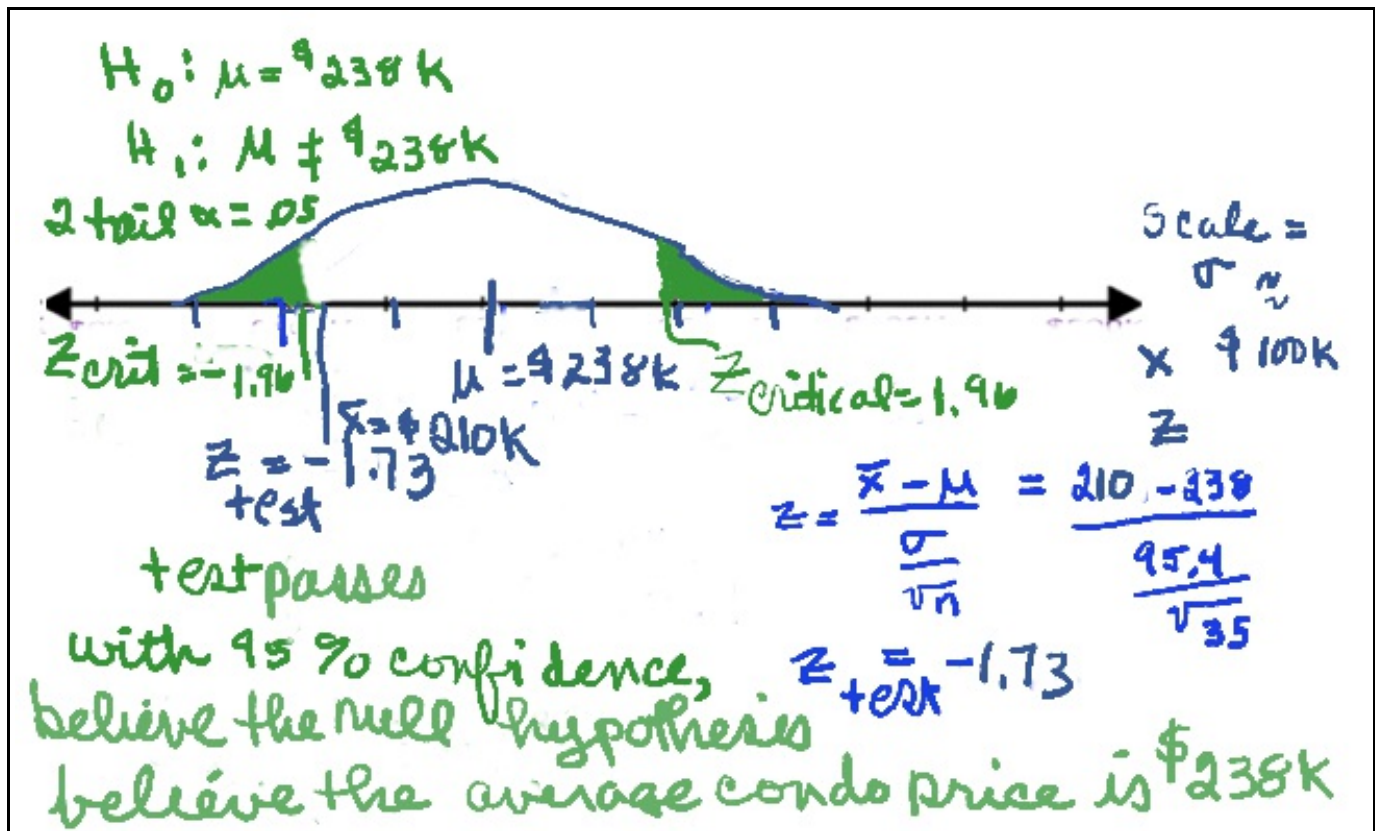 H₀: μ = $238K
H₁: μ ≠ $238K
2 tail α = .05
Scale =
σ ≈
x $100K
z
Zcrit = -1.96
μ = $238K
Zcritical = 1.96
x̄ = $210K
Ztest = -1.73
z = (x̄ - μ) / (σ/√n) = (210 - 238) / (95.4/√35)
Ztest = -1.73
test passes
with 95% confidence,
believe the null hypothesis
believe the average condo price is $238K